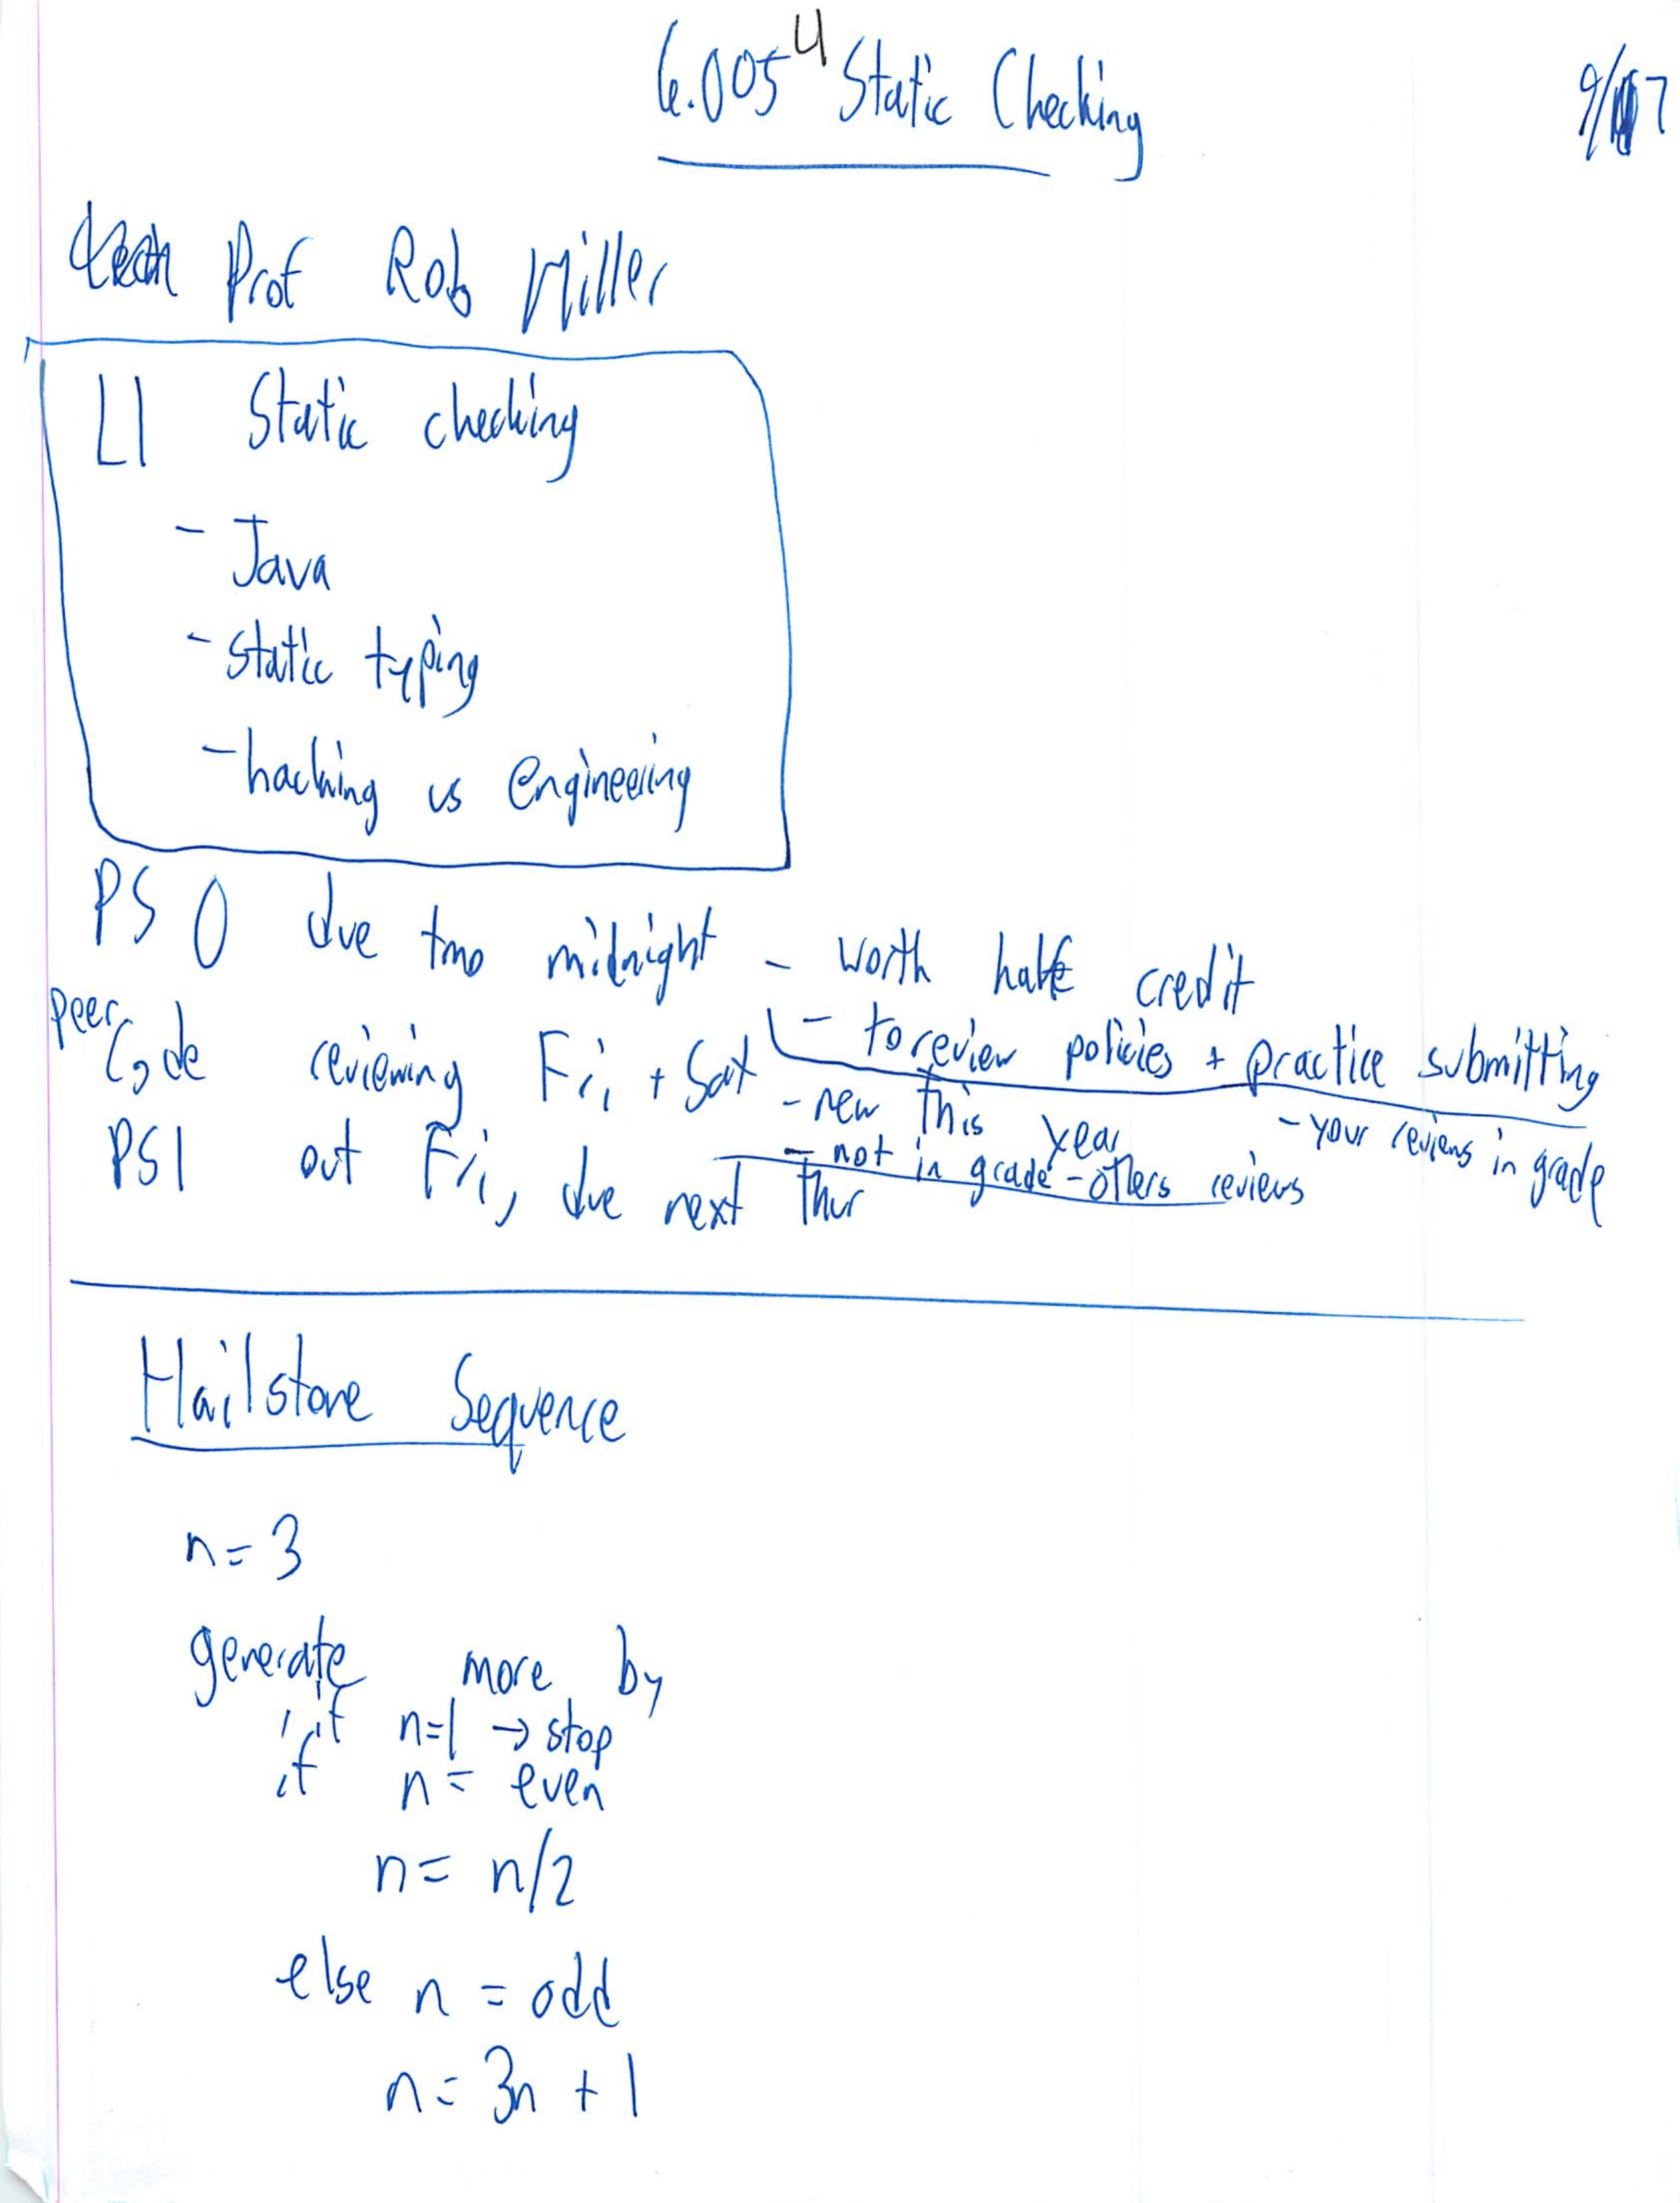 6.005 L1 Static Checking 9/7
Prof Rob Miller
L1 Static checking
- Java
- static typing
- hacking vs engineering
PS 0 due tmo midnight - worth half credit
- to review policies + practice submitting
peer Code reviewing Fri + Sat - new this year - your reviews in grade
- not in grade - others reviews
PS1 out Fri, due next Thur
Hailstone Sequence
n = 3
generate more by
if n=1 → stop
if n = even
n = n/2
else n = odd
n = 3n + 1